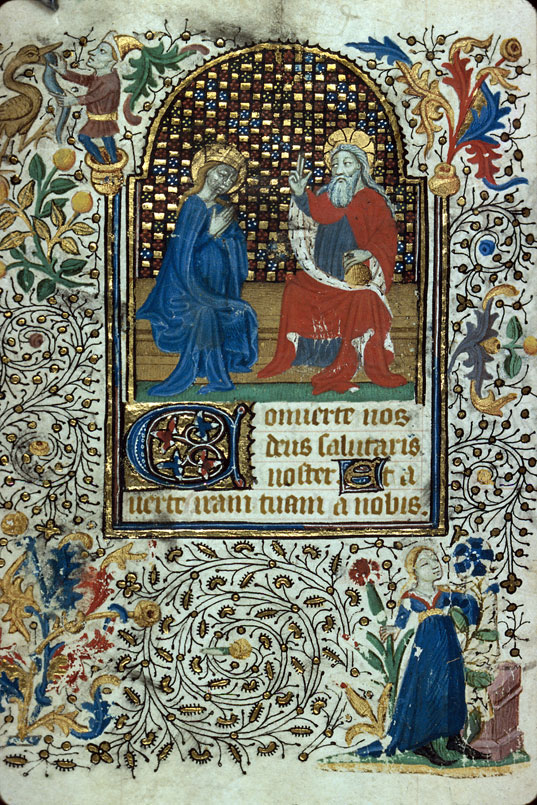 Conuerte nos
deus salutaris
noster Et a
uerte iram tuam a nobis.